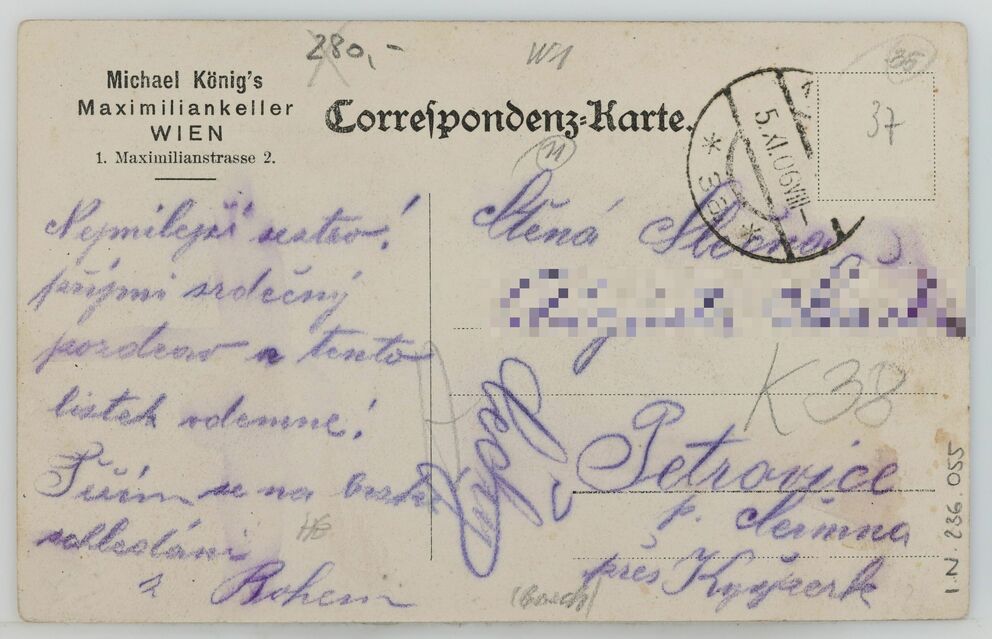 280,-
W1
35
Michael König's
Maximiliankeller
WIEN
1. Maximilianstrasse 2.
Correspondenz-Karte.
5.XI.06 VIII-
* 3a *
37
11
Nejmilejší sestro!
přijmi srdečný
pozdrav a tento
lístek odemne!
Těším se na brzké
shledání
z Bohem
Ctěná
Čechy
K38
Petrovice
p.
přes
HG
I.N. 236.055